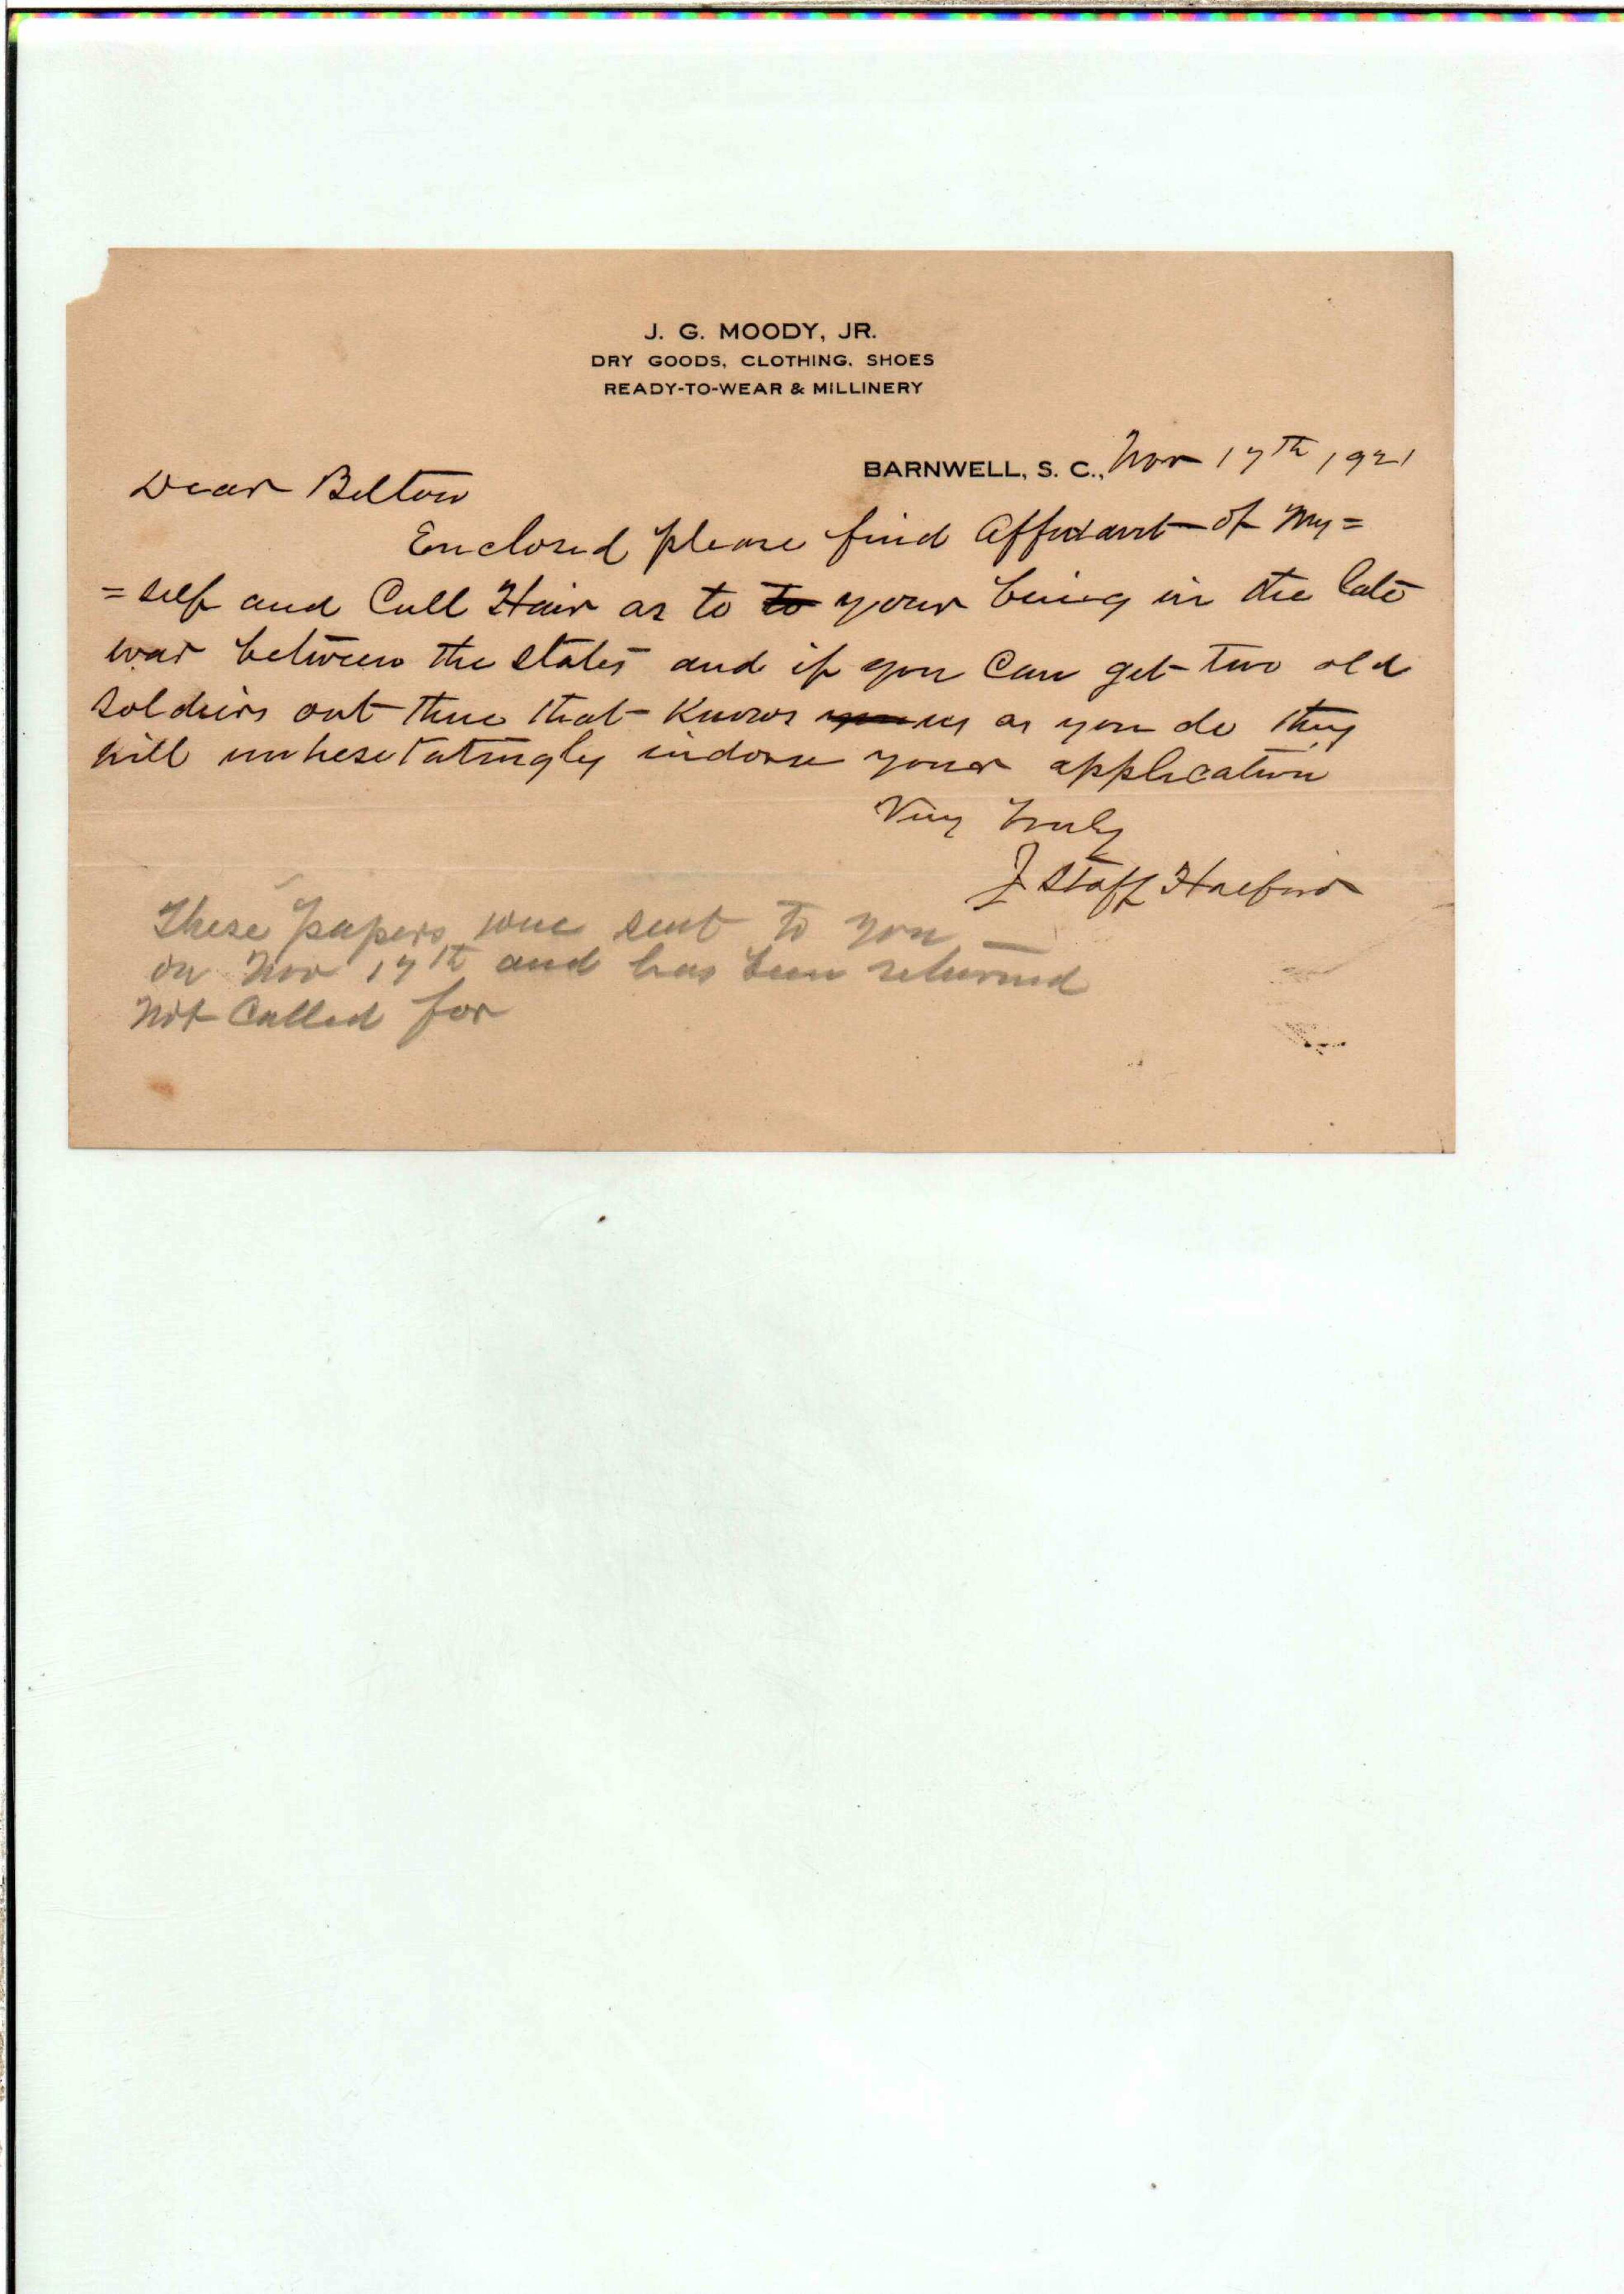 J. G. MOODY, JR.
DRY GOODS, CLOTHING, SHOES
READY-TO-WEAR & MILLINERY
BARNWELL, S. C., Nov 17th 1921
Dear Belton
Enclosed please find Affidavit of My=
=self and Cull Hair as to to your being in the late
war between the states and if you Can get two old
soldiers out there that Knows you us as you do they
will unhesitatingly indorse your application
Very Truly
J Staff Halford
These papers were sent to you —
on Nov 17th and has been returned
Not Called for